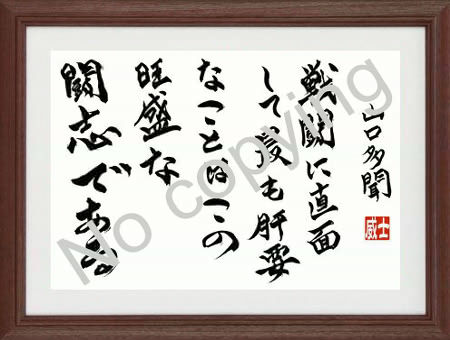 山口多聞
威士
戦闘に直面
して最も肝要
なことはこの
旺盛な
闘志である
No copying